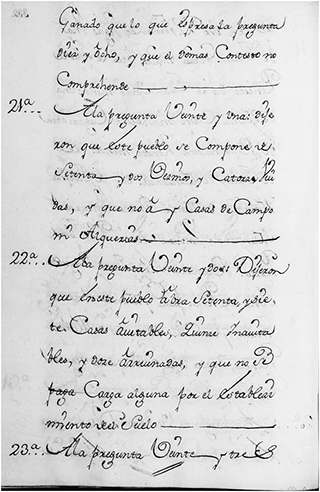 Ganado que lo que Espresa la pregunta
diez y Ocho, y que el demas Contesto no
Comprehende
21ª... A la pregunta Veinte y vna: Dije
ron que este pueblo se Compone de
Setenta y dos Vecinos, y Catorze Viu
das, y que no ai Casas de Campo
ni Alquerias
22ª... A la pregunta Veinte y dos: Dijeron
que en este pueblo abra Setenta, y sie
te Casas auitables, Quince Inauita
bles, y doze arruinadas, y que no se
paga Carga alguna por el establezi
miento del Suelo
23ª. A la pregunta Veinte y tres